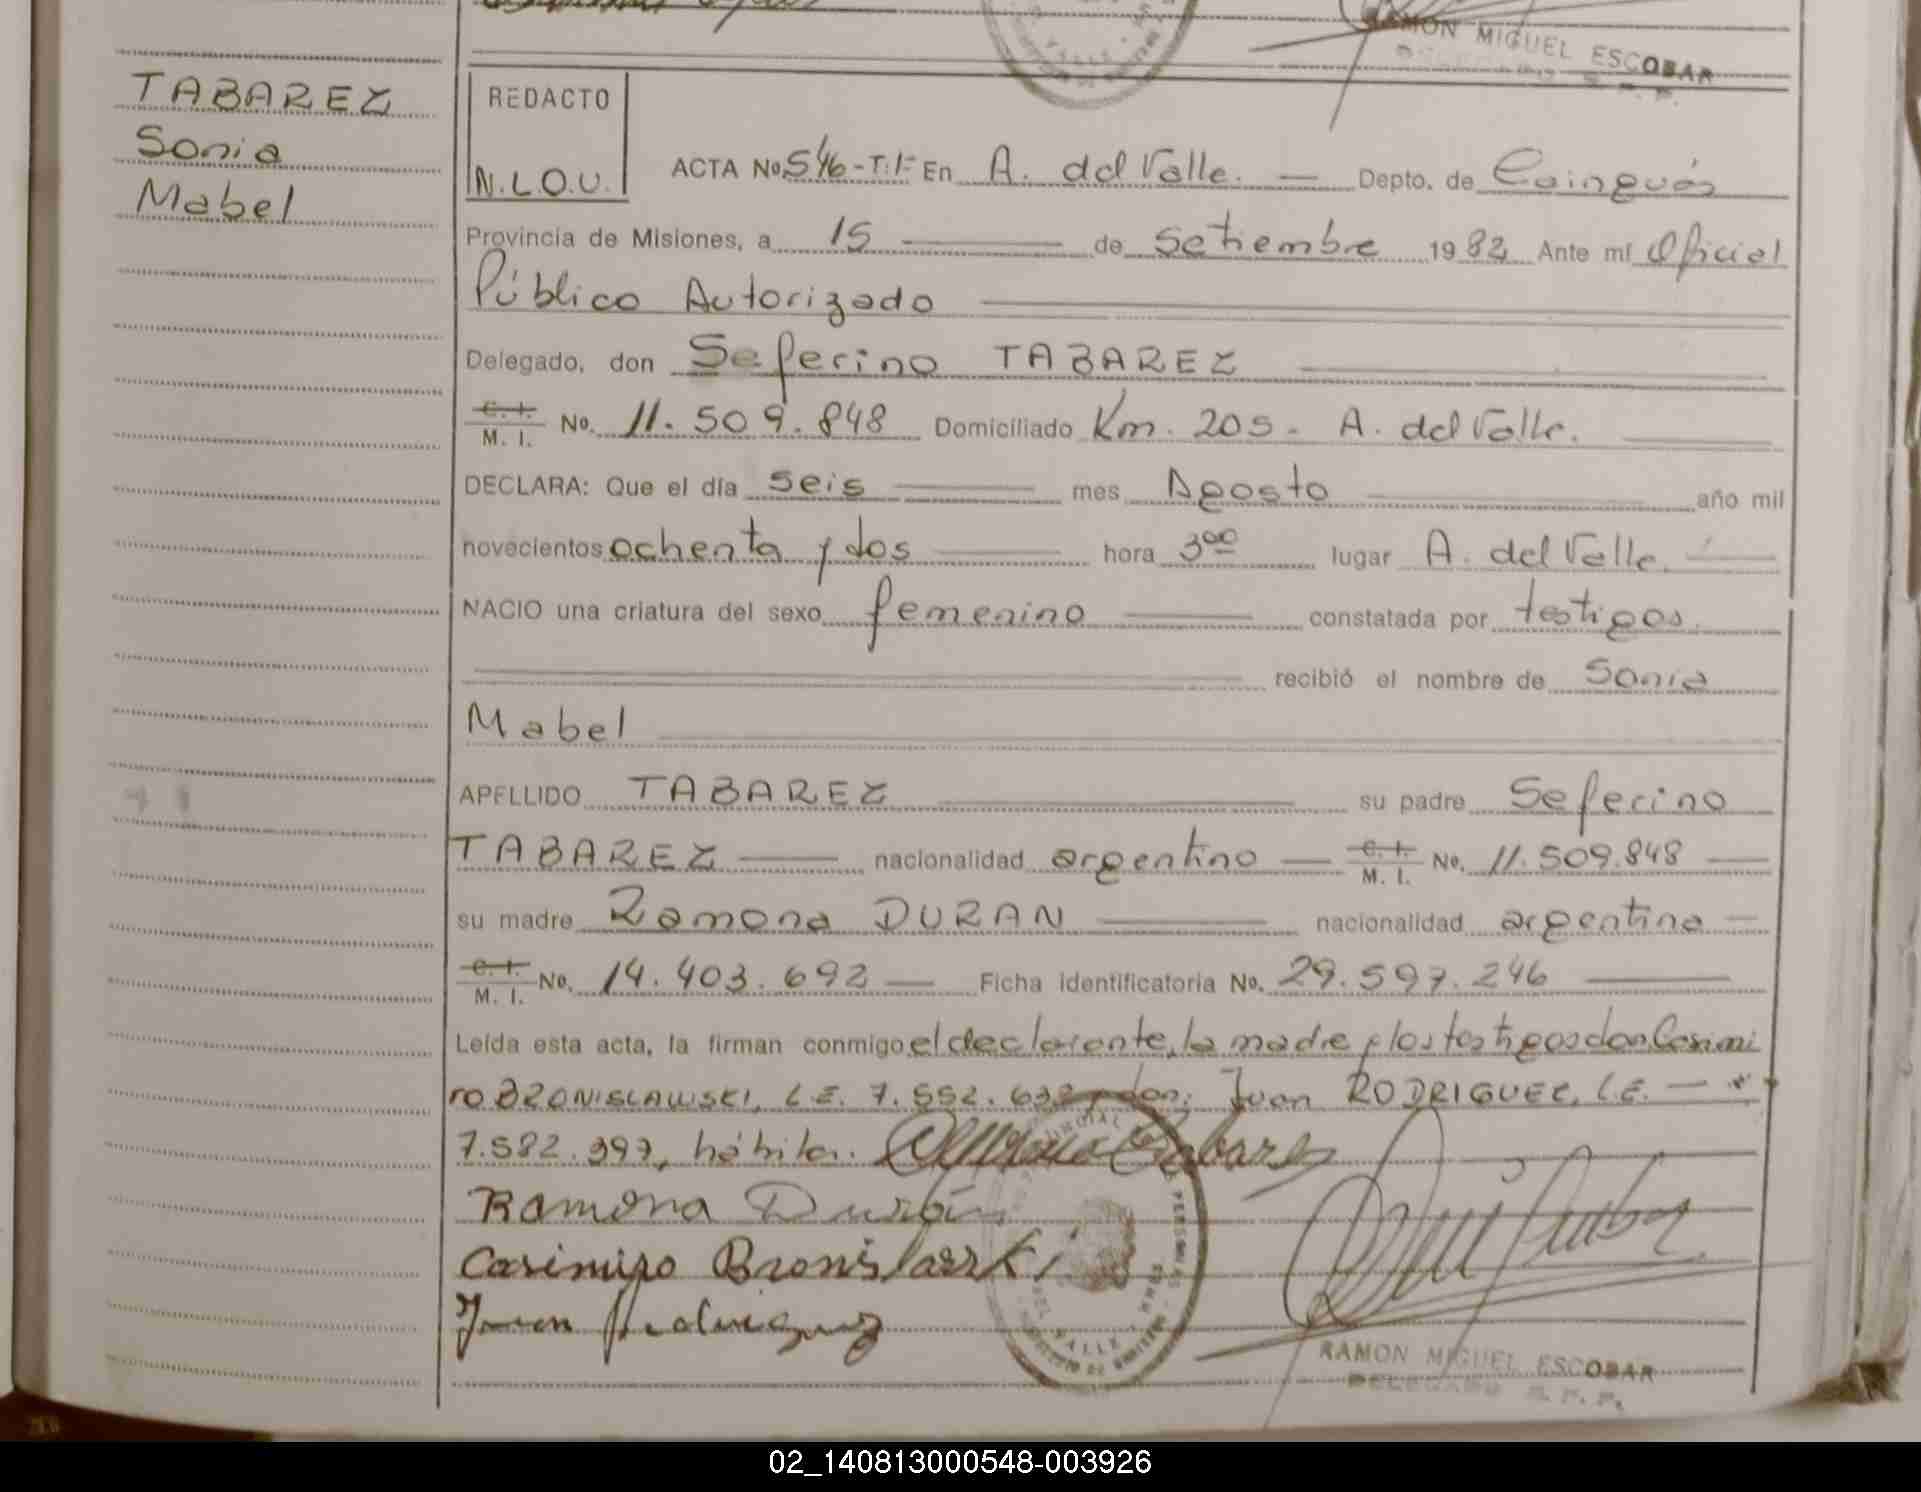 RAMON MIGUEL ESCOBAR
TABAREZ
Sonia
Mabel
REDACTO
N.L.O.U.
ACTA No. 546-T:I- En A. del Valle. Depto. de Cainguás
Provincia de Misiones, a 15 de Setiembre 1982 Ante mí Oficial
Público Autorizado
Delegado, don Seferino TABAREZ
C. I. M. I. No. 11.509.848 Domiciliado Km. 205- A. del Valle.
DECLARA: Que el día seis mes Agosto año mil
novecientos ochenta y dos hora 300 lugar A. del Valle.
NACIO una criatura del sexo femenino constatada por testigos.
recibió el nombre de Sonia
Mabel
APELLIDO TABAREZ su padre Seferino
TABAREZ nacionalidad argentino C. I. M. I. No. 11.509.848
su madre Ramona DURAN nacionalidad argentina
C. I. M. I. No. 14.403.692 Ficha identificatoria No. 29.597.246
Leída esta acta, la firman conmigo el declarente, la madre y los testigos don Casimi
ro BRONISLAWSKI, L.E. 7.552.632 y don: Juan RODRIGUEZ, L.E.
7.582.397, hábiles.
Ramona Durán
Casimiro Bronislarski
Juan Rodriguez
VALLE
RAMON MIGUEL ESCOBAR
DELEGADO R. P. P.
02_140813000548-003926